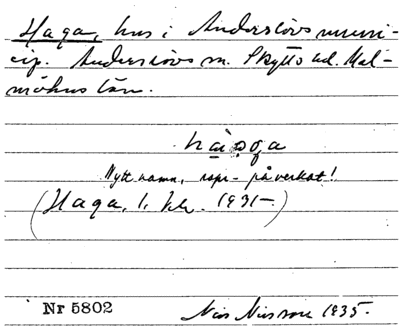 Haga, hus i Anderslövs muni-
cip. Anderslövs sn. Skytts hd. Mal-
möhus län.
Nytt namn, rspr-påverkat!
(Haga, 1, kv. 1931-.)
Nr 5802
Nils Nilsson 1935.